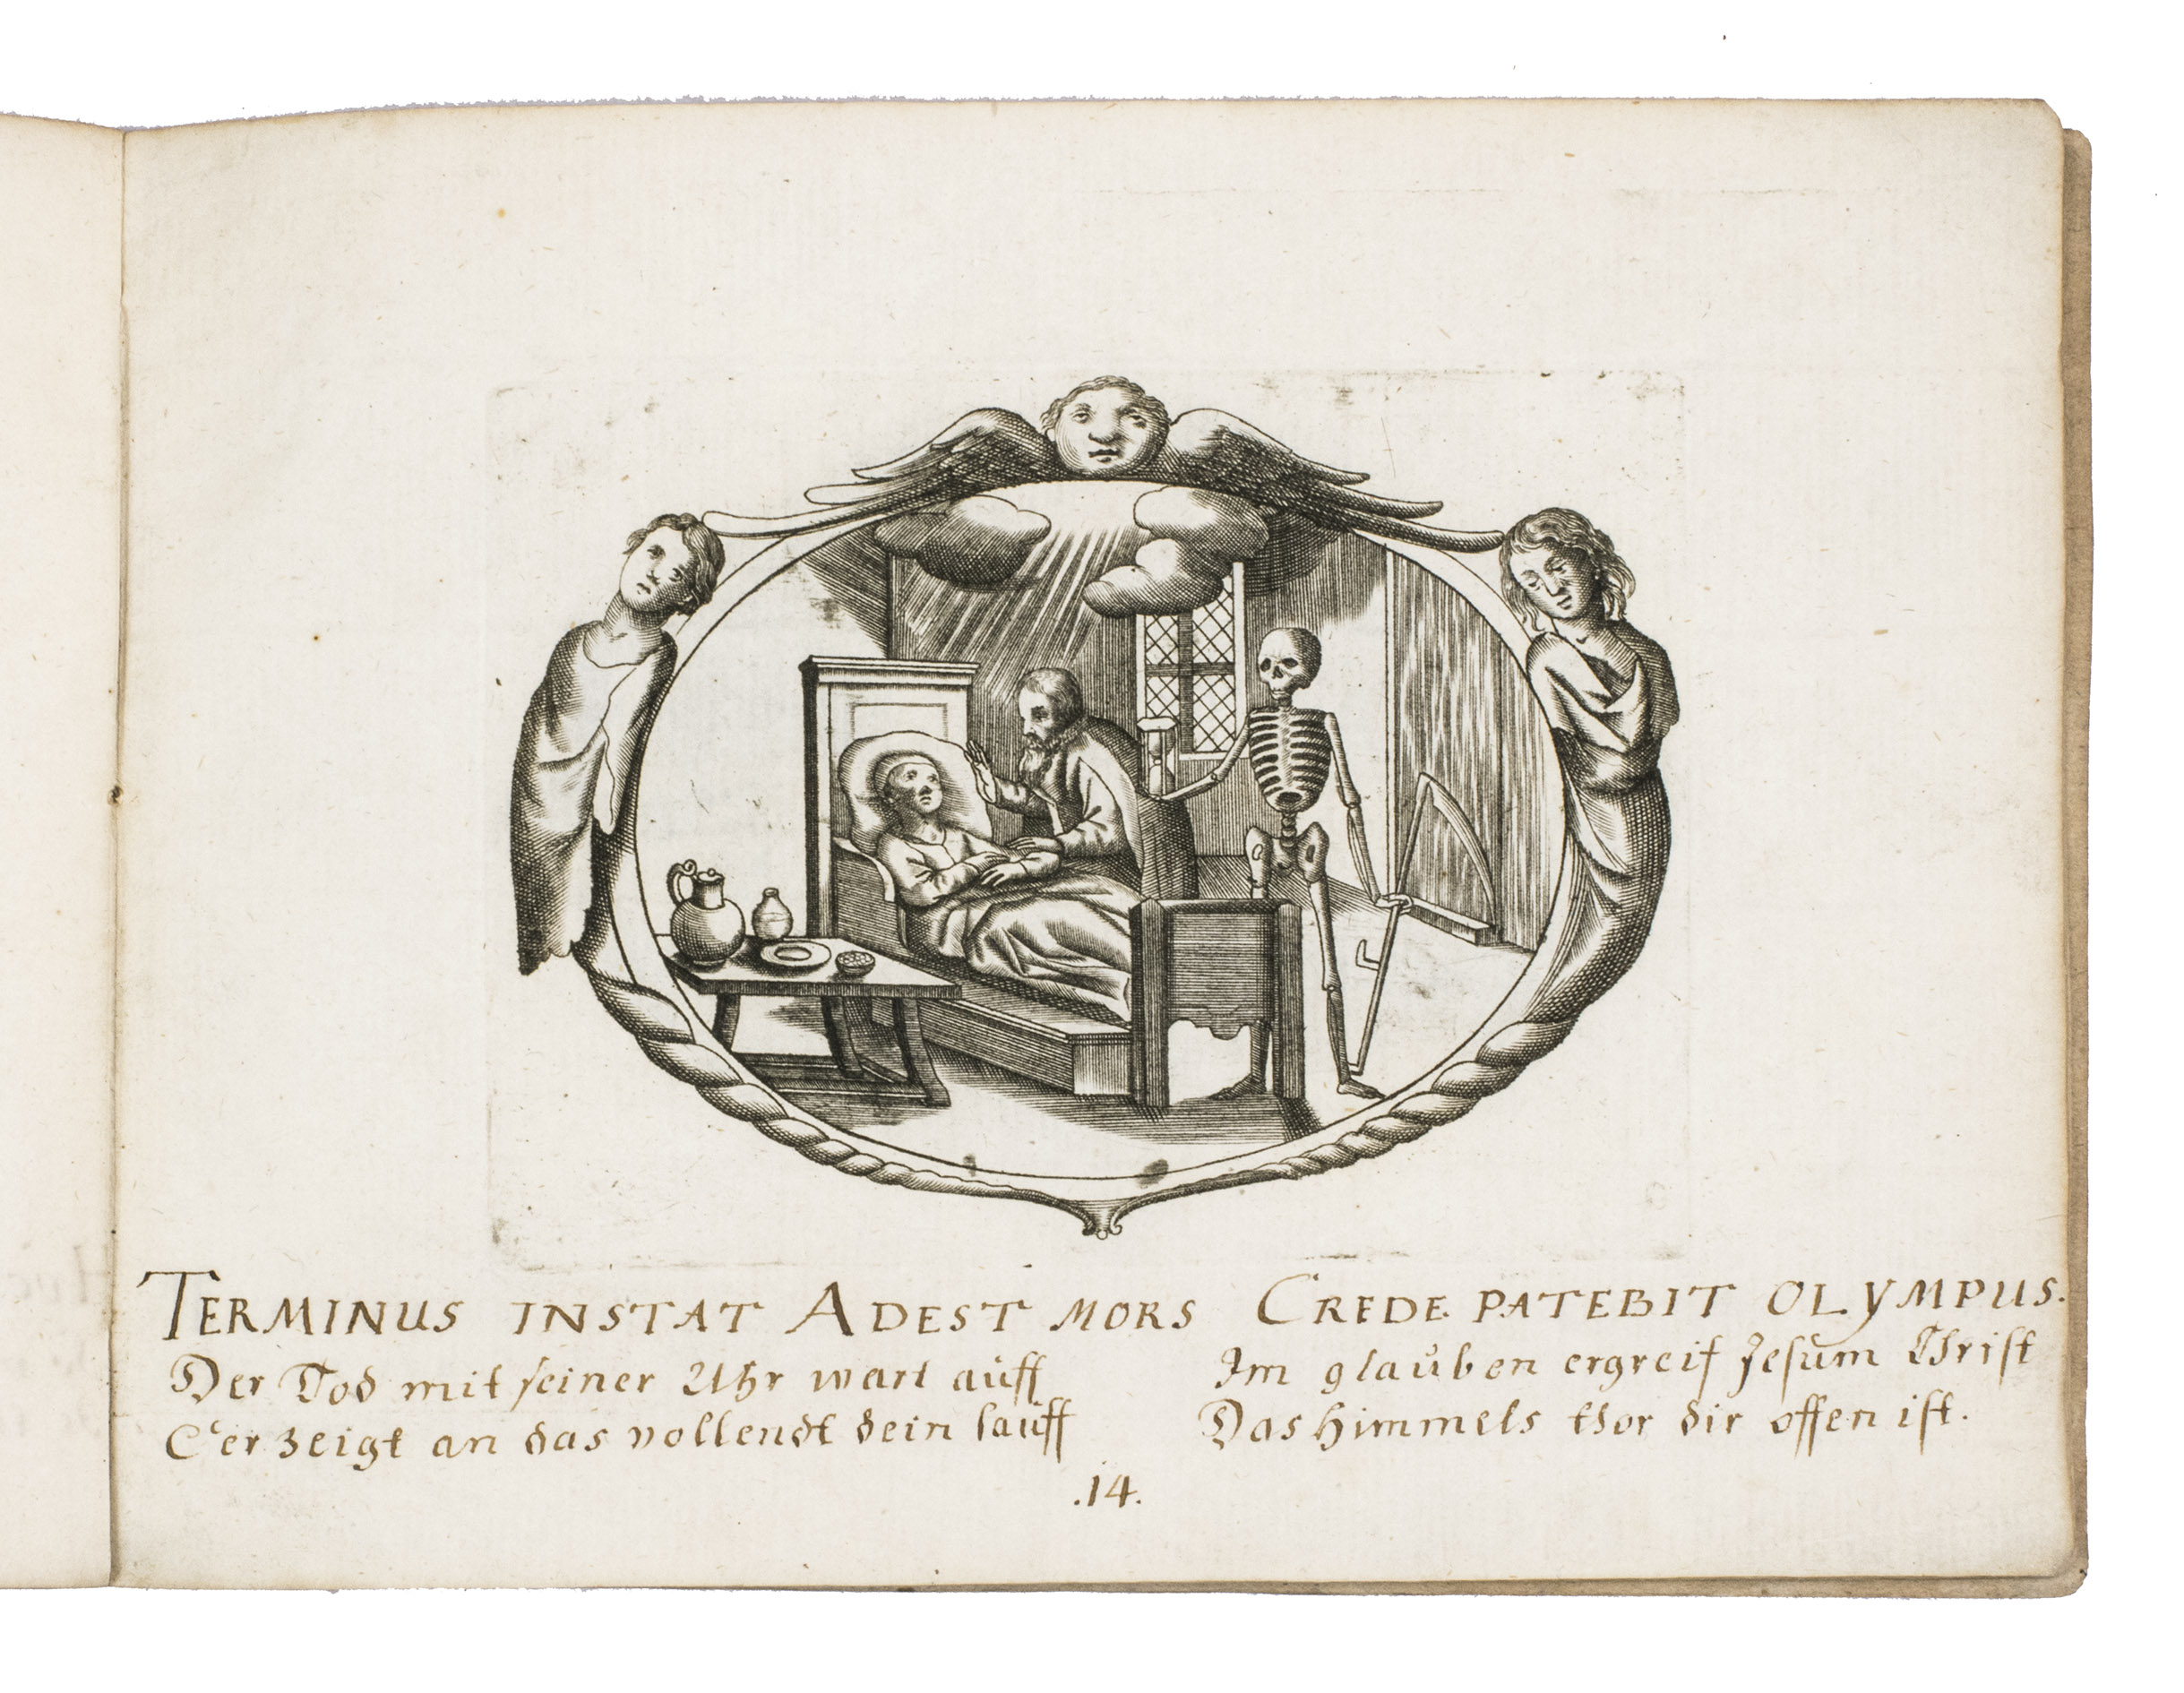 TERMINUS INSTAT ADEST MORS CREDE PATEBIT OLYMPUS.
Der Tod mit seiner Uhr wart auff
Er zeigt an das vollendt dein lauff
Im glauben ergreif Jesum Christ
Das himmels thor dir offen ist.
.14.